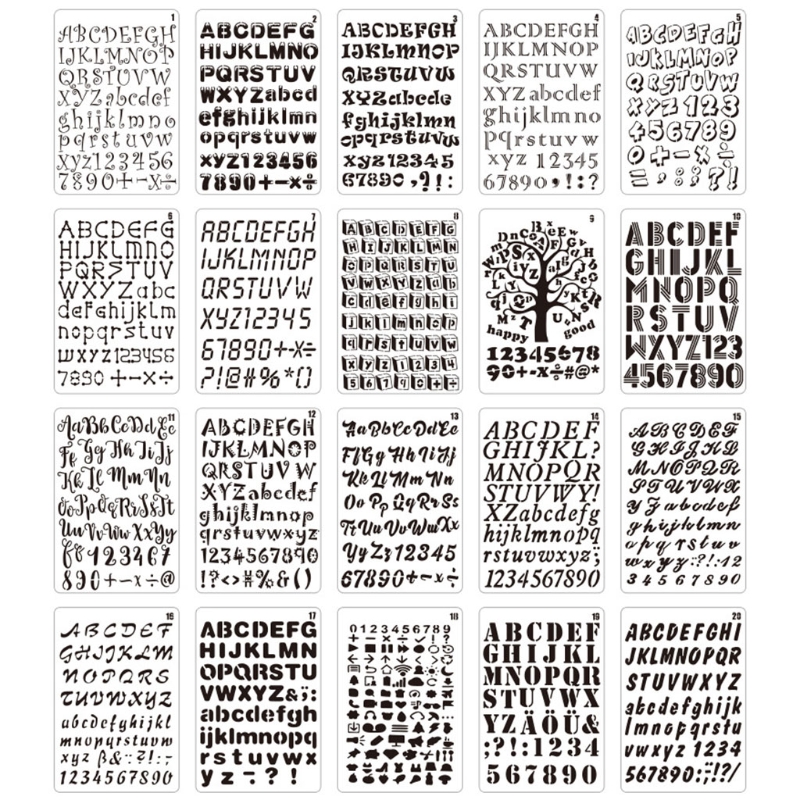 1
ABCDEFGH
IJKLMNOP
QRSTUVW
XYZabcdef
ghijklmno
pqrstuvw
xyz123456
7890+-×÷
2
ABCDEFG
HIJKLMNO
PQRSTUV
WXYZabcd
efghijklmn
opqrstuvw
xyz123456
7890+-×÷
3
ABCDEFGH
IJKLMNOP
QRSTUVW
XYZabcde
fghijklmn
opqrstuvw
xyz12345
67890,?!:
4
ABCDEFGH
IJKLMNOP
QRSTUVW
XYZabcdef
ghijklmno
pqrstuvw
xyz 12345
67890,!:?
5
ABCDEFGH
IJKLMNOP
QRSTUVW
XYZ123
456789
0+-×÷
=,:;?!
6
ABCDEFG
HIJKLMNO
PQRSTUV
WXYZabc
defghijklm
nopqrstuv
wxyz123456
7890+-×÷
7
ABCDEFGH
IJKLMNOP
QRSTUVW
XYZ12345
67890+-×÷
?!@#%*()
8
ABCDEFG
HIJKLMN
OPQRSTU
VWXYZab
cdefghi
jklmnop
qrstuvw
xyz1234
567890+÷
9
happy good
12345678
90+-×÷#@*
10
ABCDEF
GHIJKL
MNOPQ
RSTUV
WXYZ123
4567890
11
AaBbCcDdEe
Ff Gg Hh Ii Jj
Kk Ll Mm Nn
OoPpQqRrSsTt
UuVvWwXxYy
Zz 1234567
890+-×÷@
12
ABCDEFGH
IJKLMNOP
QRSTUVW
XYZabcdef
ghijklmnop
qrstuvwxyz
1234567890
!?<>#%&()
13
AaBbCcDdEe
FfGgHhIiJj
KkLlMmNn
OoPpQqRrSs
TtUuVvWwXx
YyZz12345
67890+-×÷
14
ABCDEF
GHIJKL?
MNOPQR
STUVWXY!
XZabcdefg
hijklmnopq
rstuvwxyz;
1234567890
15
ABCDEF
GHIJKL
MNOPQR
STUVWX
YZabcdef
ghijklmn
opqrstuv
wxyz:?!:12
34567890
16
ABCDEF
GHIJKLM
NOPQRS
TUVWXYZ
abcdefghijkl
mnopqrstuvw
xyzß&:?!:.
1234567890
17
ABCDEFG
HIJKLMN
OPQRSTU
VWXYZ&;:
abcdefgh
ijklmnopq
rstuvwx
yz-:?!
18
0123456789
19
ABCDEF
GHIJKL
MNOPQR
STUVWX
YZÄÖÜ&
;?!:1234
567890
20
ABCDEFGHI
JKLMNOPQR
STUVWXYZ
abcdefghijk
lmnopqrstu
vwxyz1234
567890:;!?/